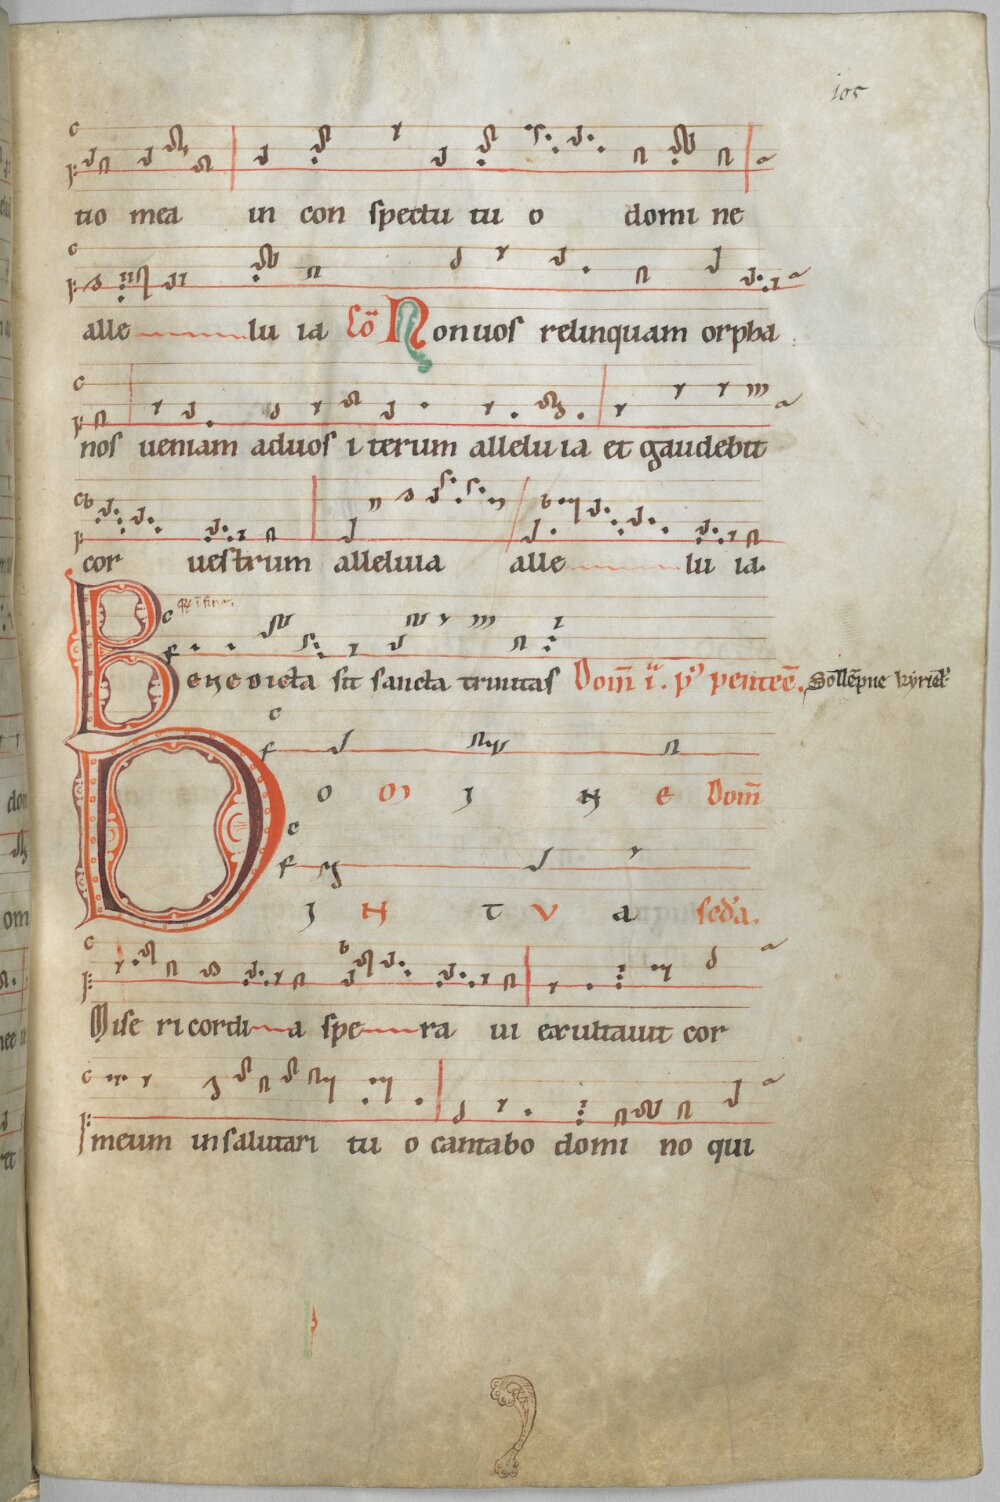 105
tio mea in con spectu tu o domi ne
alle lu ia Co Non uos relinquam orpha
nos ueniam aduos i terum allelu ia et gaudebit
cor uestrum alleluia alle lu ia.
Benedicta sit sancta trinitas Dom̅ i. p̅ pentec̅. Solle̅pne kyriel̅
DOMINE Dom̅
IN TVA seda.
Mise ri cordi a spe ra ui exultauit cor
meum insalutari tu o cantabo domi no qui